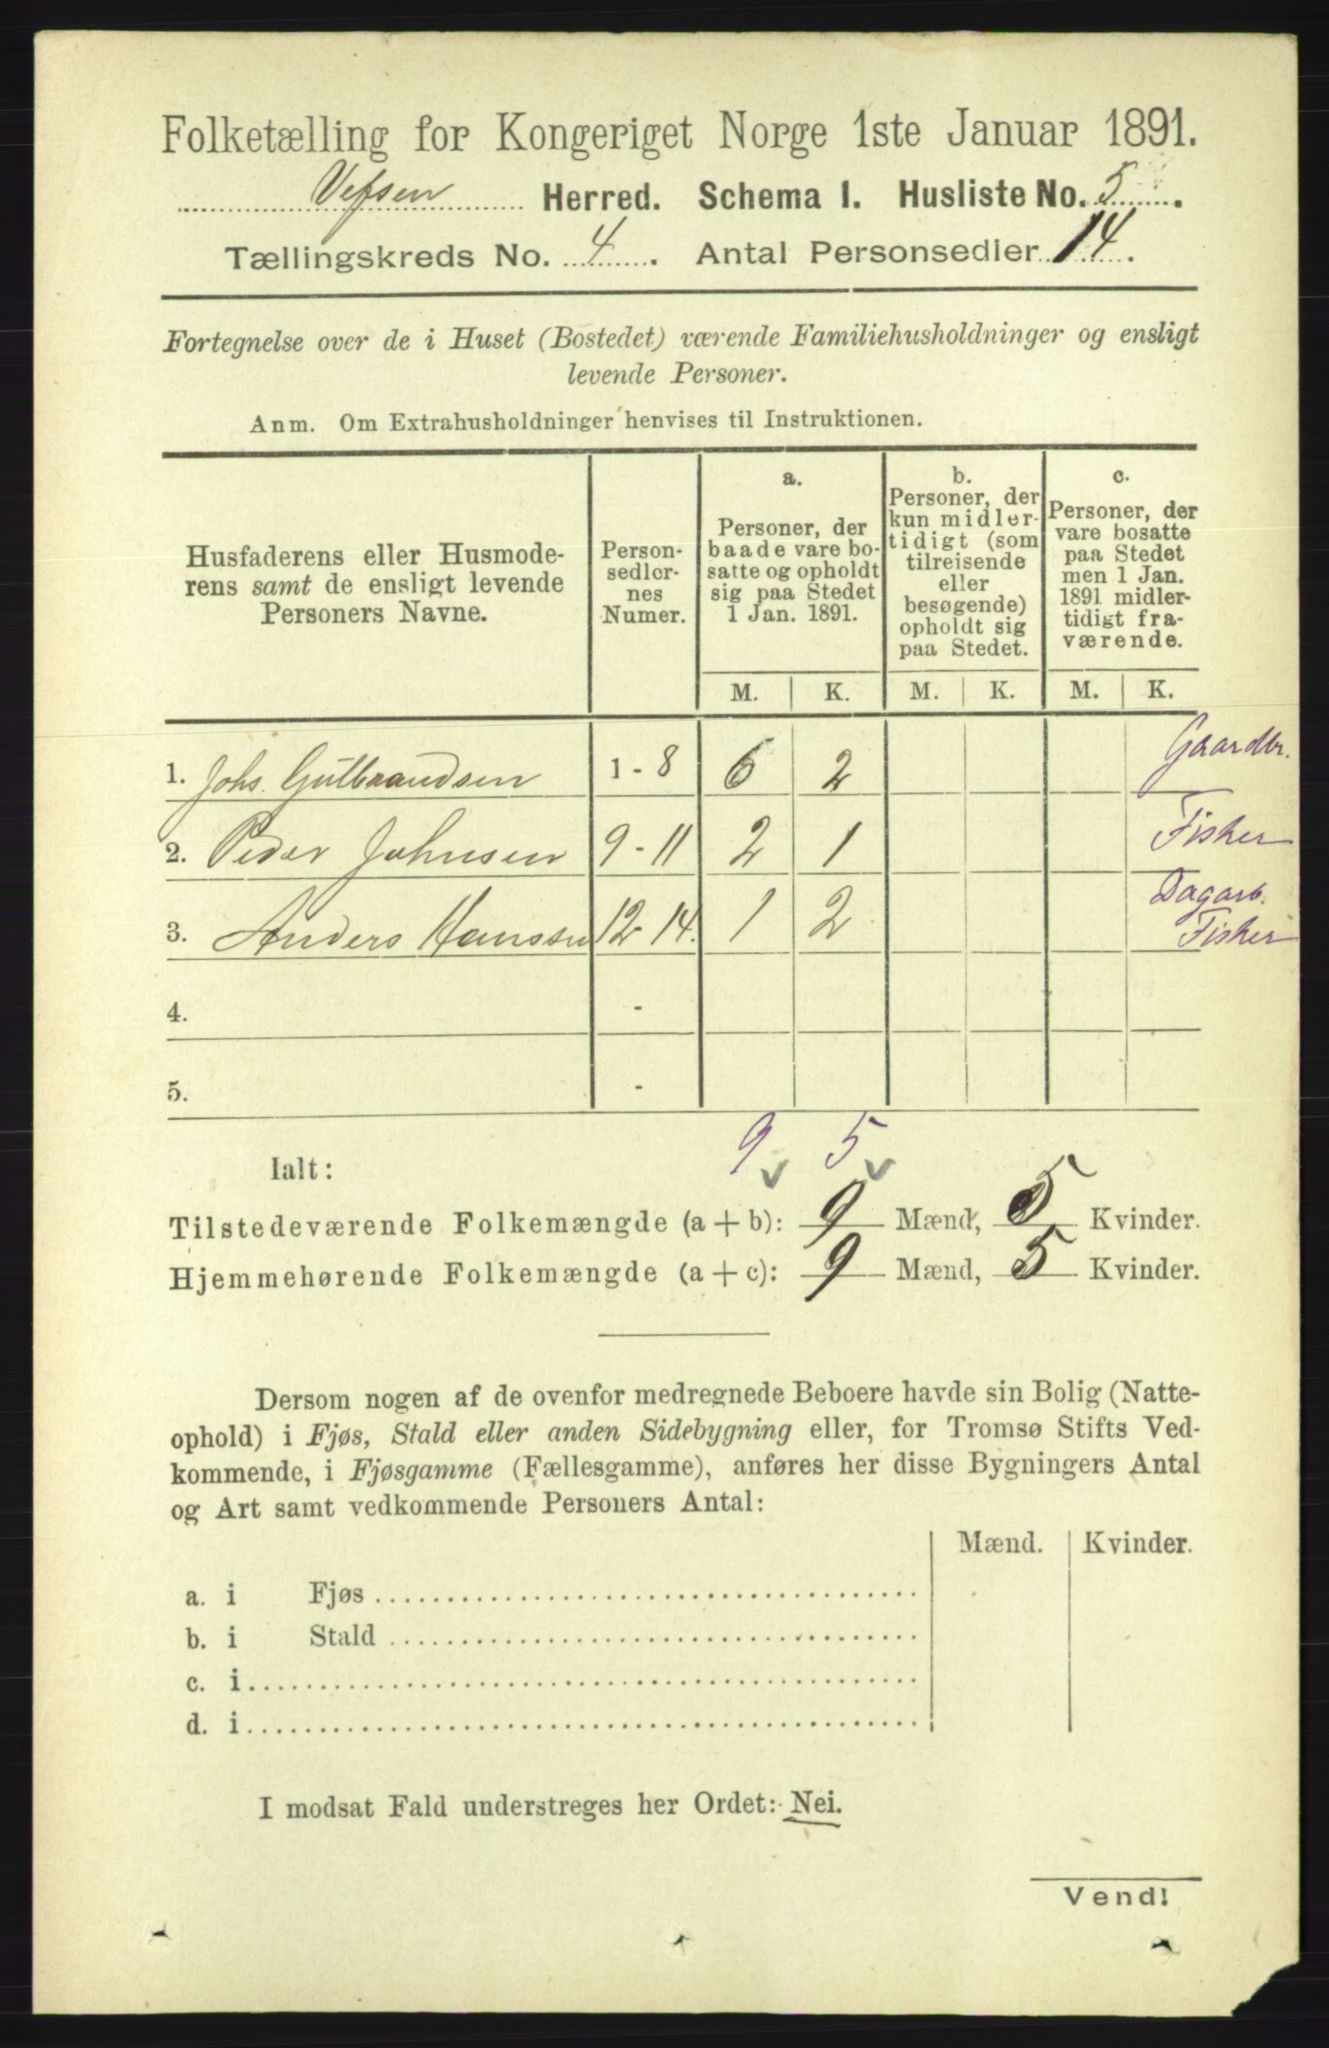 Folketælling for Kongeriget Norge 1ste Januar 1891.
Vefsen Herred. Schema I. Husliste No. 5.
Tællingskreds No. 4. Antal Personsedler 14.
Fortegnelse over de i Huset (Bostedet) værende Familiehusholdninger og ensligt
levende Personer.
Anm. Om Extrahusholdninger henvises til Instruktionen.
Husfaderens eller Husmode-
rens samt de ensligt levende
Personers Navne.
Person-
sedler-
nes
Numer.
a.
Personer, der
baade vare bo-
satte og opholdt
sig paa Stedet
1 Jan. 1891.
b.
Personer, der
kun midler-
tidigt (som
tilreisende
eller
besøgende)
opholdt sig
paa Stedet.
c.
Personer, der
vare bosatte
paa Stedet
men 1 Jan.
1891 midler-
tidigt fra-
værende.
M. K. M. K. M. K.
1. Johs. Gulbrandsen 1-8 6 2 Gaardbr.
2. Peder Johnsen 9-11 2 1 Fisker
3. Anders Hanssen 12-14. 1 2 Dagarb.
Fisker
4. -
5. -
9 5
Ialt:
Tilstedeværende Folkemængde (a+b): 9 Mænd, 5 Kvinder.
Hjemmehørende Folkemængde (a+c): 9 Mænd, 5 Kvinder.
Dersom nogen af de ovenfor medregnede Beboere havde sin Bolig (Natte-
ophold) i Fjøs, Stald eller anden Sidebygning eller, for Tromsø Stifts Ved-
kommende, i Fjøsgamme (Fællesgamme), anføres her disse Bygningers Antal
og Art samt vedkommende Personers Antal:
Mænd. Kvinder.
a. i Fjøs
b. i Stald
c. i
d. i
I modsat Fald understreges her Ordet: Nei.
Vend!